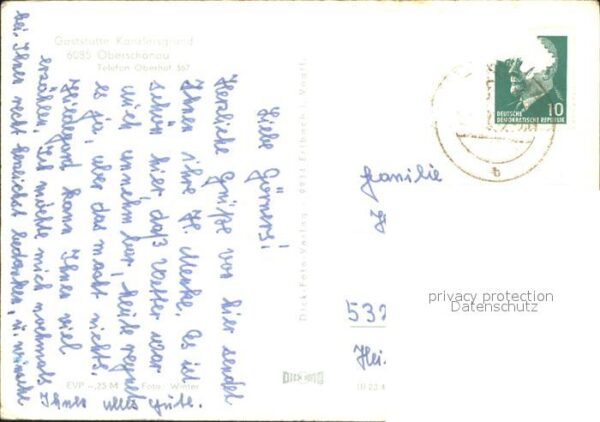 Gaststätte Kanzlersgrund
6085 Oberschönau
Telefon Oberhof 367
Liebe Görners!
Herzliche Grüße von hier sendet
Ihnen ihre H. Menke. Es ist
schön hier, daß Wetter war
auch annehmbar, heute regnet
es ja, aber das macht nichts.
Hildegard kann Ihnen viel
erzählen. Ich möchte mich nochmals
bei Ihnen recht herzlichst bedanken, u. wünsche
Ihnen alles Gute.
EVP -,25 M Foto: Winter
Dick-Foto-Verlag, 9931 Erlbach i. Vogtl.
DEUTSCHE
DEMOKRATISCHE REPUBLIK
10
Familie
532
Hei
privacy protection
Datenschutz